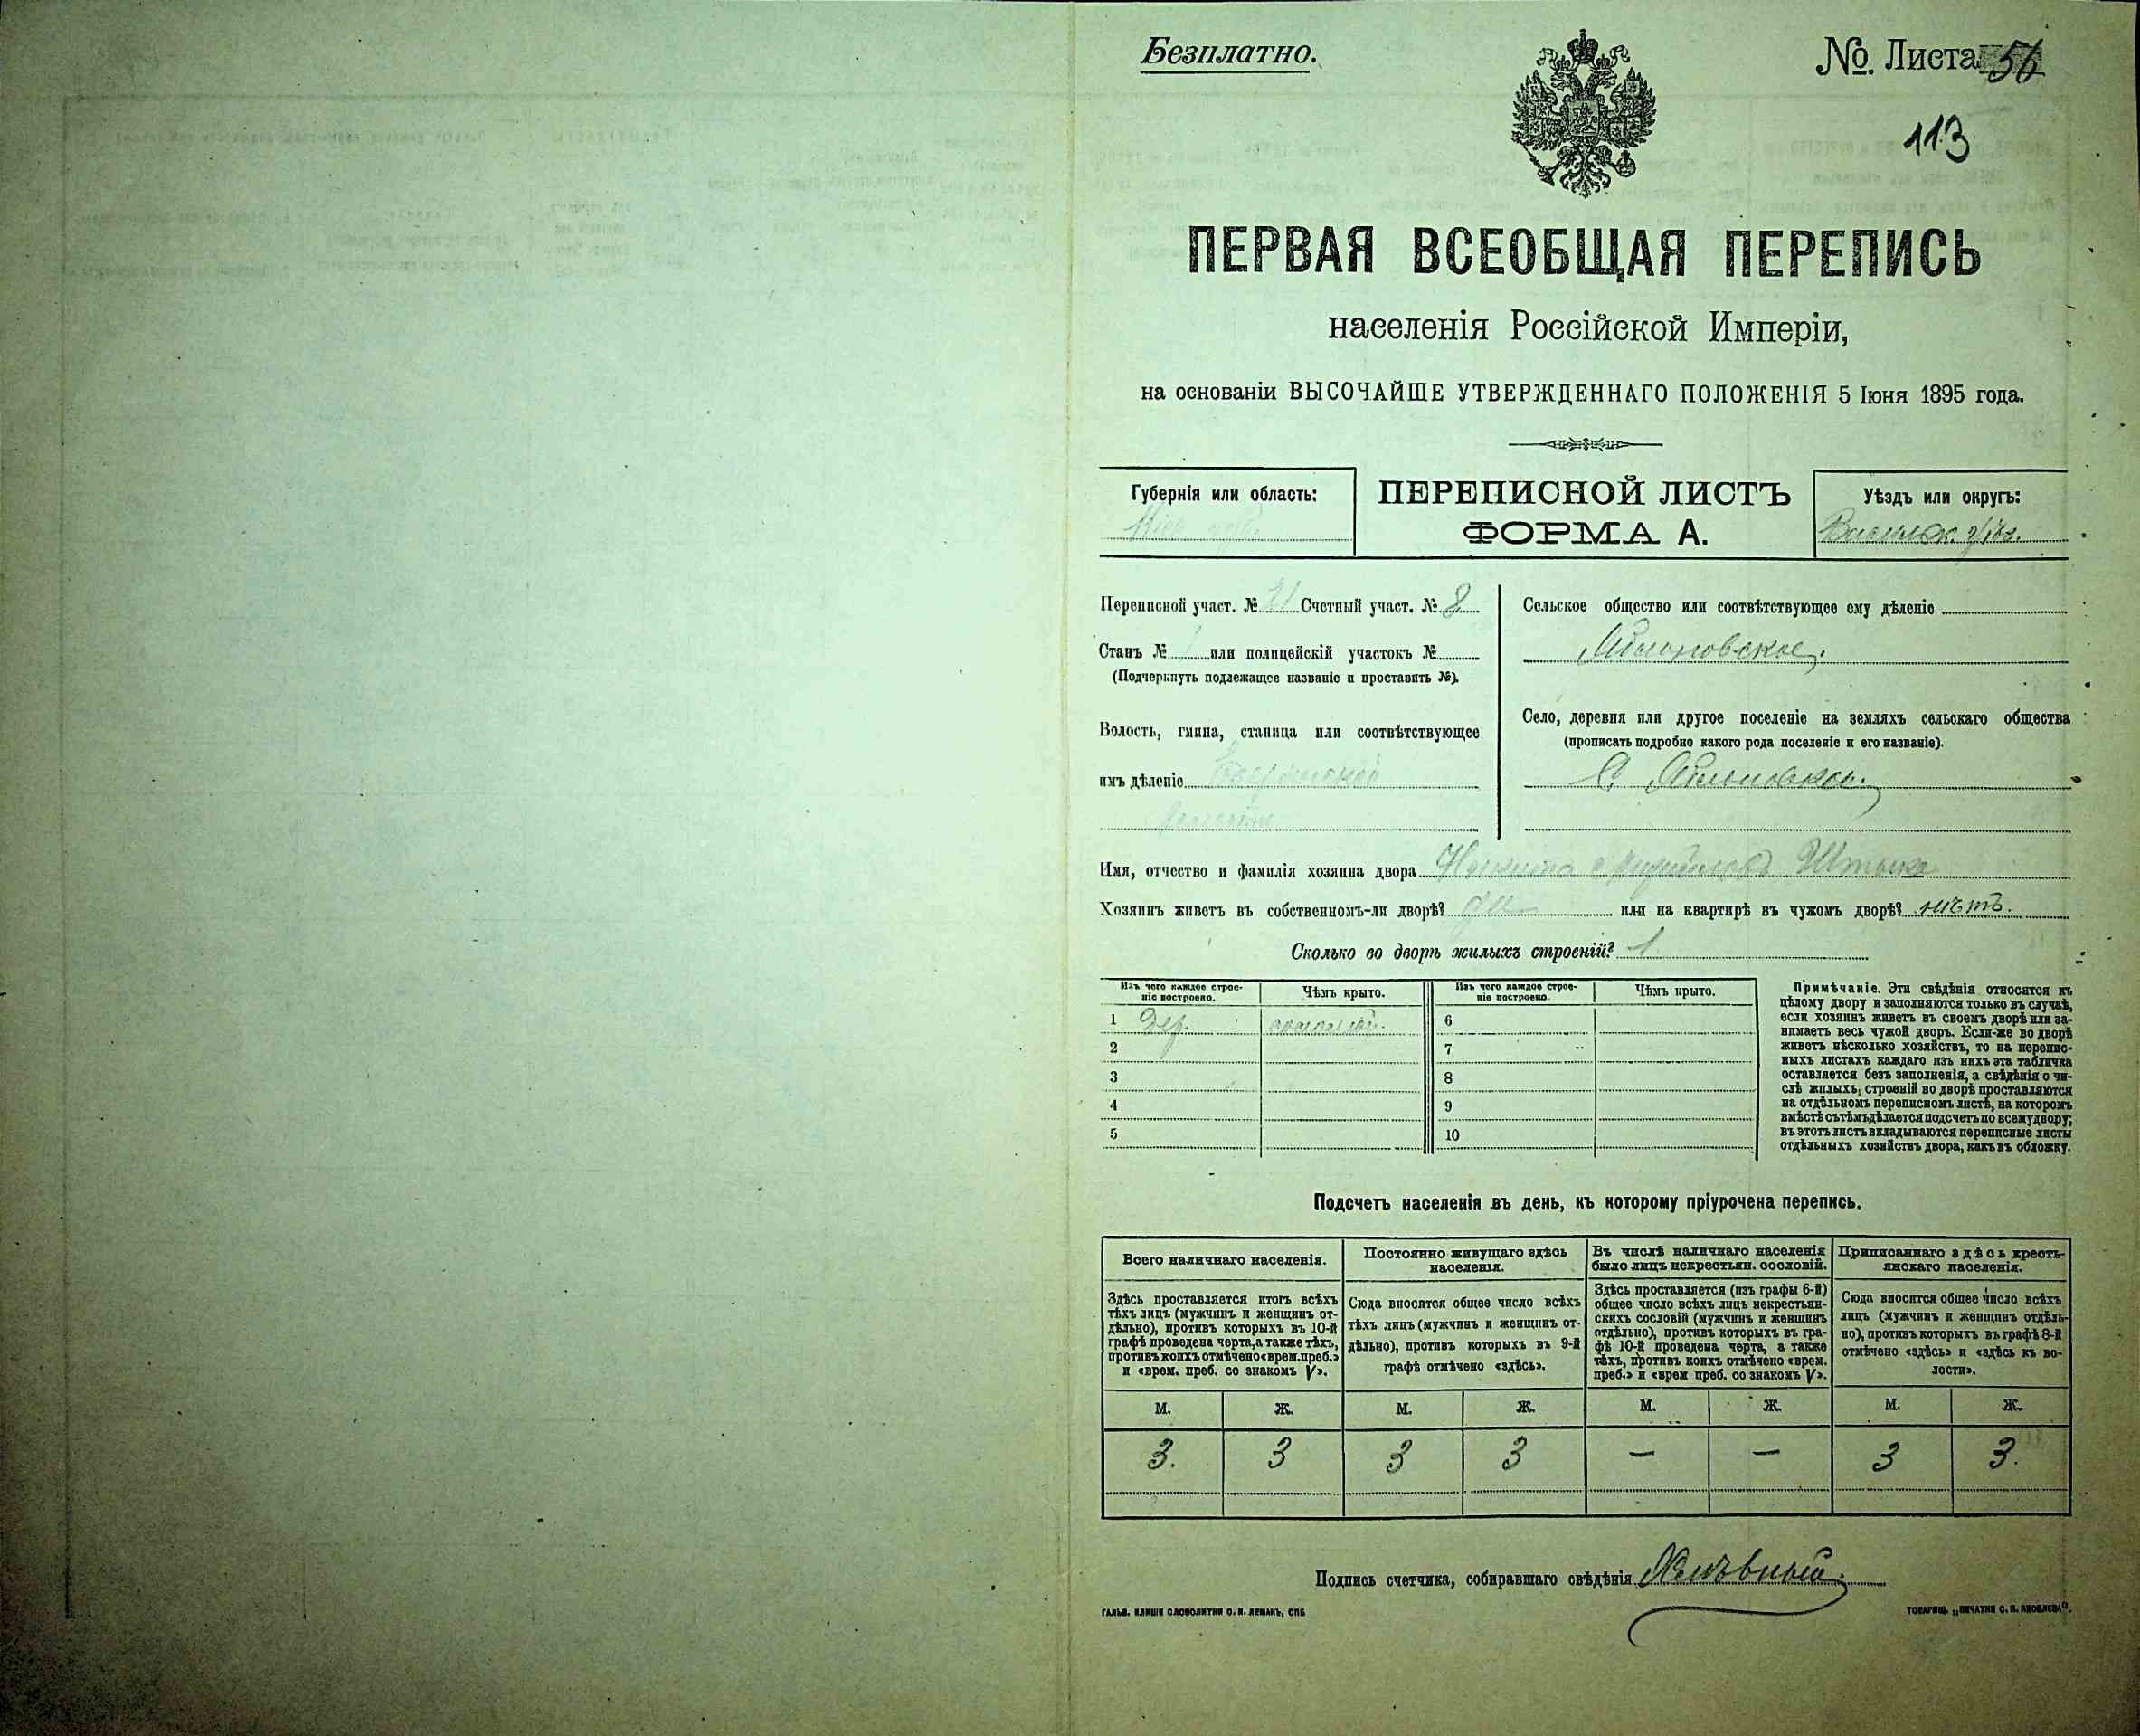 Безплатно.
№. Листа 56
113
ПЕРВАЯ ВСЕОБЩАЯ ПЕРЕПИСЬ
населенія Россійской Имперіи,
на основаніи ВЫСОЧАЙШЕ УТВЕРЖДЕННАГО ПОЛОЖЕНІЯ 5 Іюня 1895 года.
Губернія или область:
ПЕРЕПИСНОЙ ЛИСТЪ
ФОРМА А.
Уѣздъ или округъ:
Васильк. уѣз.
Переписной участ. № 21 Счетный участ. № 8
Станъ № 1 или полицейскій участокъ №
(Подчеркнуть подлежащее названіе и проставить №).
Волость, гмина, станица или соотвѣтствующее
имъ дѣленіе
Сельское общество или соотвѣтствующее ему дѣленіе
Село, деревня или другое поселеніе на земляхъ сельскаго общества
(прописать подробно какого рода поселеніе и его названіе).
Имя, отчество и фамилія хозяина двора Никита
Хозяинъ живетъ въ собственномъ-ли дворѣ? да или на квартирѣ въ чужомъ дворѣ? нѣтъ.
Сколько во дворѣ жилыхъ строеній? 1
Изъ чего каждое строе-
ніе построено.
Чѣмъ крыто.
Изъ чего каждое строе-
ніе построено.
Чѣмъ крыто.
1 Дер. соломой. 6
2 7
3 8
4 9
5 10
Примѣчаніе. Эти свѣдѣнія относятся къ
цѣлому двору и заполняются только въ случаѣ,
если хозяинъ живетъ въ своемъ дворѣ или за-
нимаетъ весь чужой дворъ. Если-же во дворѣ
живетъ нѣсколько хозяйствъ, то на перепис-
ныхъ листахъ каждаго изъ нихъ эта табличка
оставляется безъ заполненія, а свѣдѣнія о чи-
слѣ жилыхъ строеній во дворѣ проставляются
на отдѣльномъ переписномъ листѣ, на которомъ
вмѣстѣ съ тѣмъ дѣлается подсчетъ по всему двору;
въ этотъ листъ вкладываются переписные листы
отдѣльныхъ хозяйствъ двора, какъ въ обложку.
Подсчетъ населенія въ день, къ которому пріурочена перепись.
Всего наличнаго населенія.
Здѣсь проставляется итогъ всѣхъ
тѣхъ лицъ (мужчинъ и женщинъ от-
дѣльно), противъ которыхъ въ 10-й
графѣ проведена черта, а также тѣхъ,
противъ коихъ отмѣчено «врем. преб.»
и «врем. преб. со знакомъ V».
Постоянно живущаго здѣсь
населенія.
Сюда вносится общее число всѣхъ
тѣхъ лицъ (мужчинъ и женщинъ от-
дѣльно), противъ которыхъ въ 9-й
графѣ отмѣчено «здѣсь».
Въ числѣ наличнаго населенія
было лицъ некрестьян. сословій.
Здѣсь проставляется (изъ графы 6-й)
общее число всѣхъ лицъ некрестьян-
скихъ сословій (мужчинъ и женщинъ
отдѣльно), противъ которыхъ въ гра-
фѣ 10-й проведена черта, а также
тѣхъ, противъ коихъ отмѣчено «врем.
преб.» и «врем преб. со знакомъ V».
Приписаннаго здѣсь кресть-
янскаго населенія.
Сюда вносится общее число всѣхъ
лицъ (мужчинъ и женщинъ отдѣль-
но), противъ которыхъ въ графѣ 8-й
отмѣчено «здѣсь» и «здѣсь къ во-
лости».
М. Ж. М. Ж. М. Ж. М. Ж.
3. 3 3 3 — — 3 3.
Подпись счетчика, собиравшаго свѣдѣнія
ГАЛЬВ. КЛИШЕ СЛОВОЛИТНИ О. И. ЛЕМАНЪ, СПБ
ТОВАРИЩ. „ПЕЧАТНЯ С. П. ЯКОВЛЕВА".